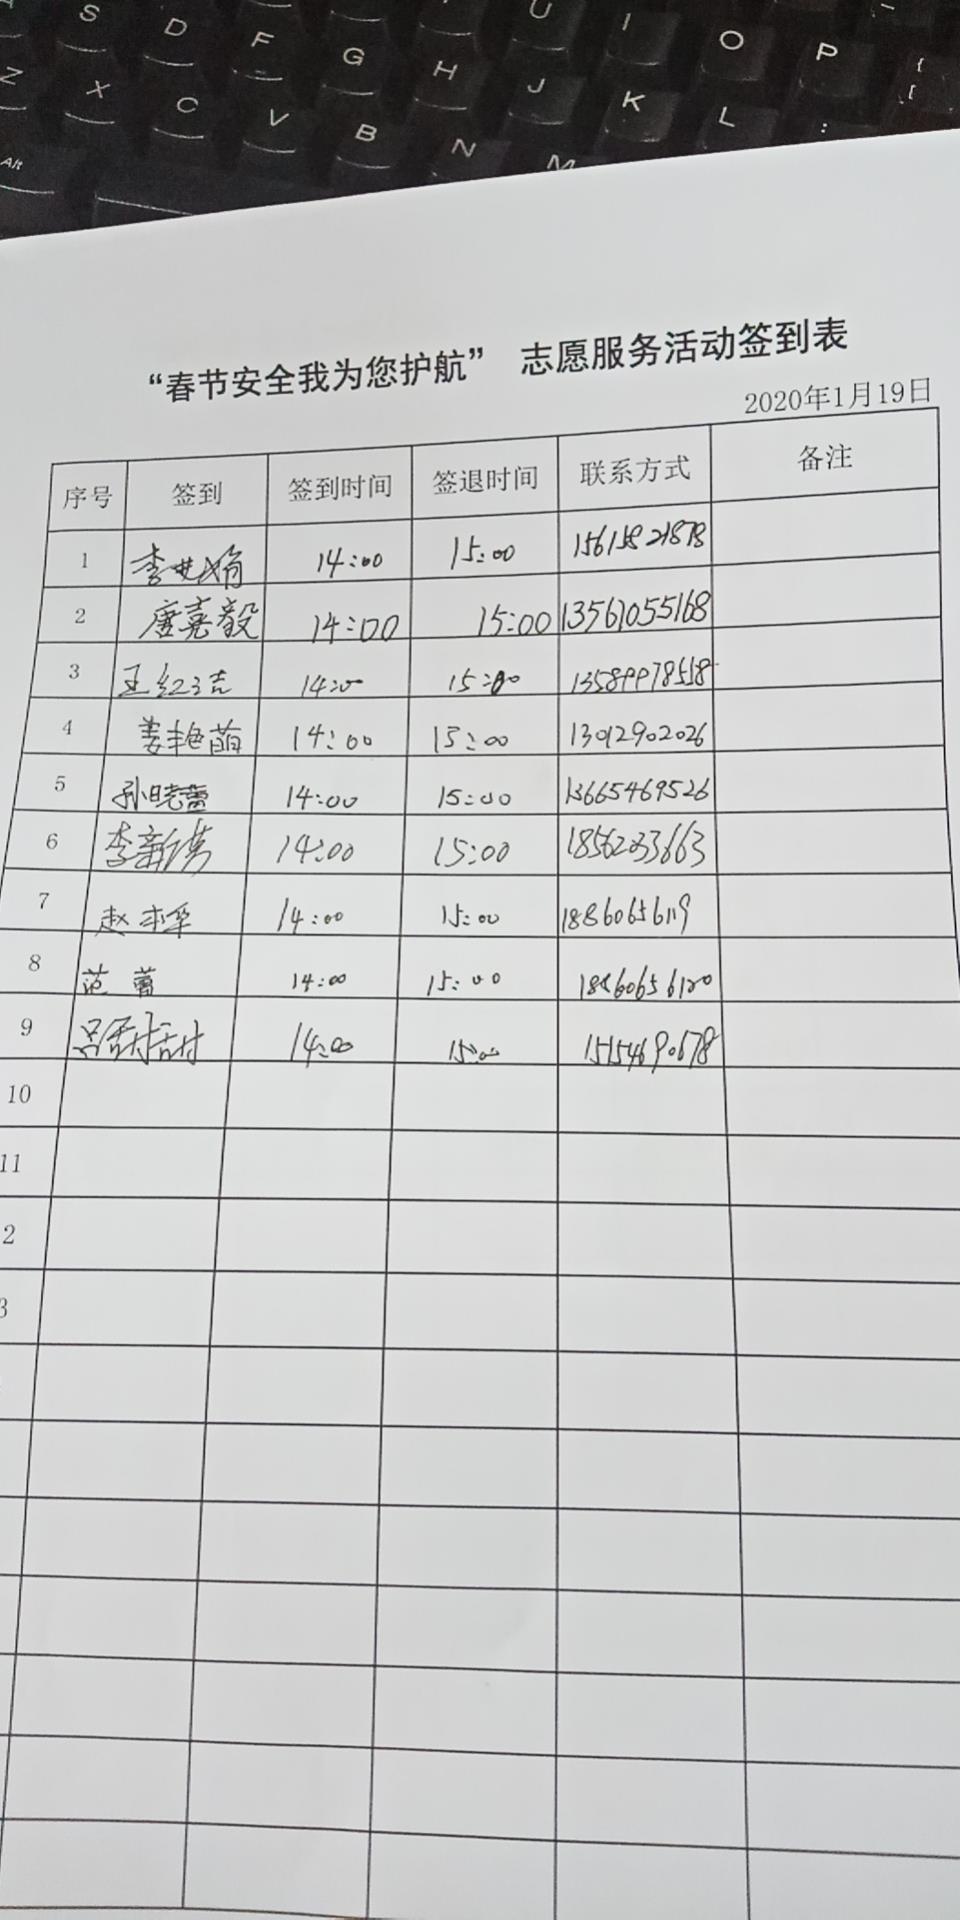 S D F G H J K L :
U I O P { [
Z X C V B N M
Alt
“春节安全我为您护航” 志愿服务活动签到表
2020年1月19日
序号 签到 签到时间 签退时间 联系方式 备注
1 14:00 15:00 15615821878
2 唐嘉毅 14:00 15:00 13561055168
3 王红洁 14:00 15:00 13589978558
4 姜艳萌 14:00 15:00 13012902026
5 孙晓蕾 14:00 15:00 13665469526
6 14:00 15:00 18562033663
7 赵 14:00 15:00 18860656119
8 范蕾 14:00 15:00 18860656120
9 吕甜甜 14:00 15:00 15154690678
10
11
2
3